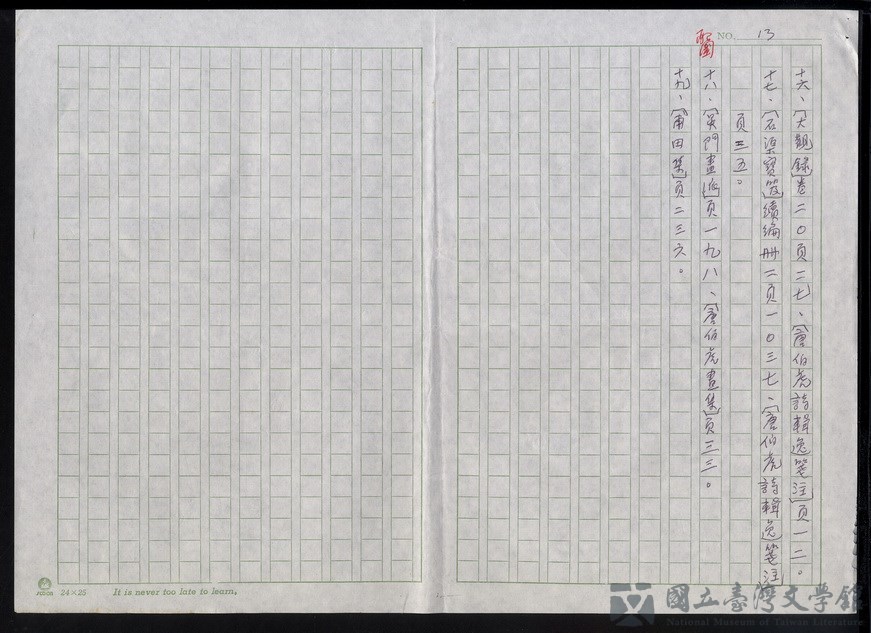 NO. 13
十六、〔大觀錄〕卷二〇頁二七、〔唐伯虎詩輯逸箋注〕頁一二。
十七、〔石渠寶笈〕續編冊二頁一〇三七、〔唐伯虎詩輯逸箋注
頁三五。
十八、〔吳門畫派〕頁一九八、〔唐伯虎畫集〕頁三三。
十九、〔甫田集〕頁二三六。
24×25 It is never too late to learn.
國立臺灣文學館
National Museum of Taiwan Literature